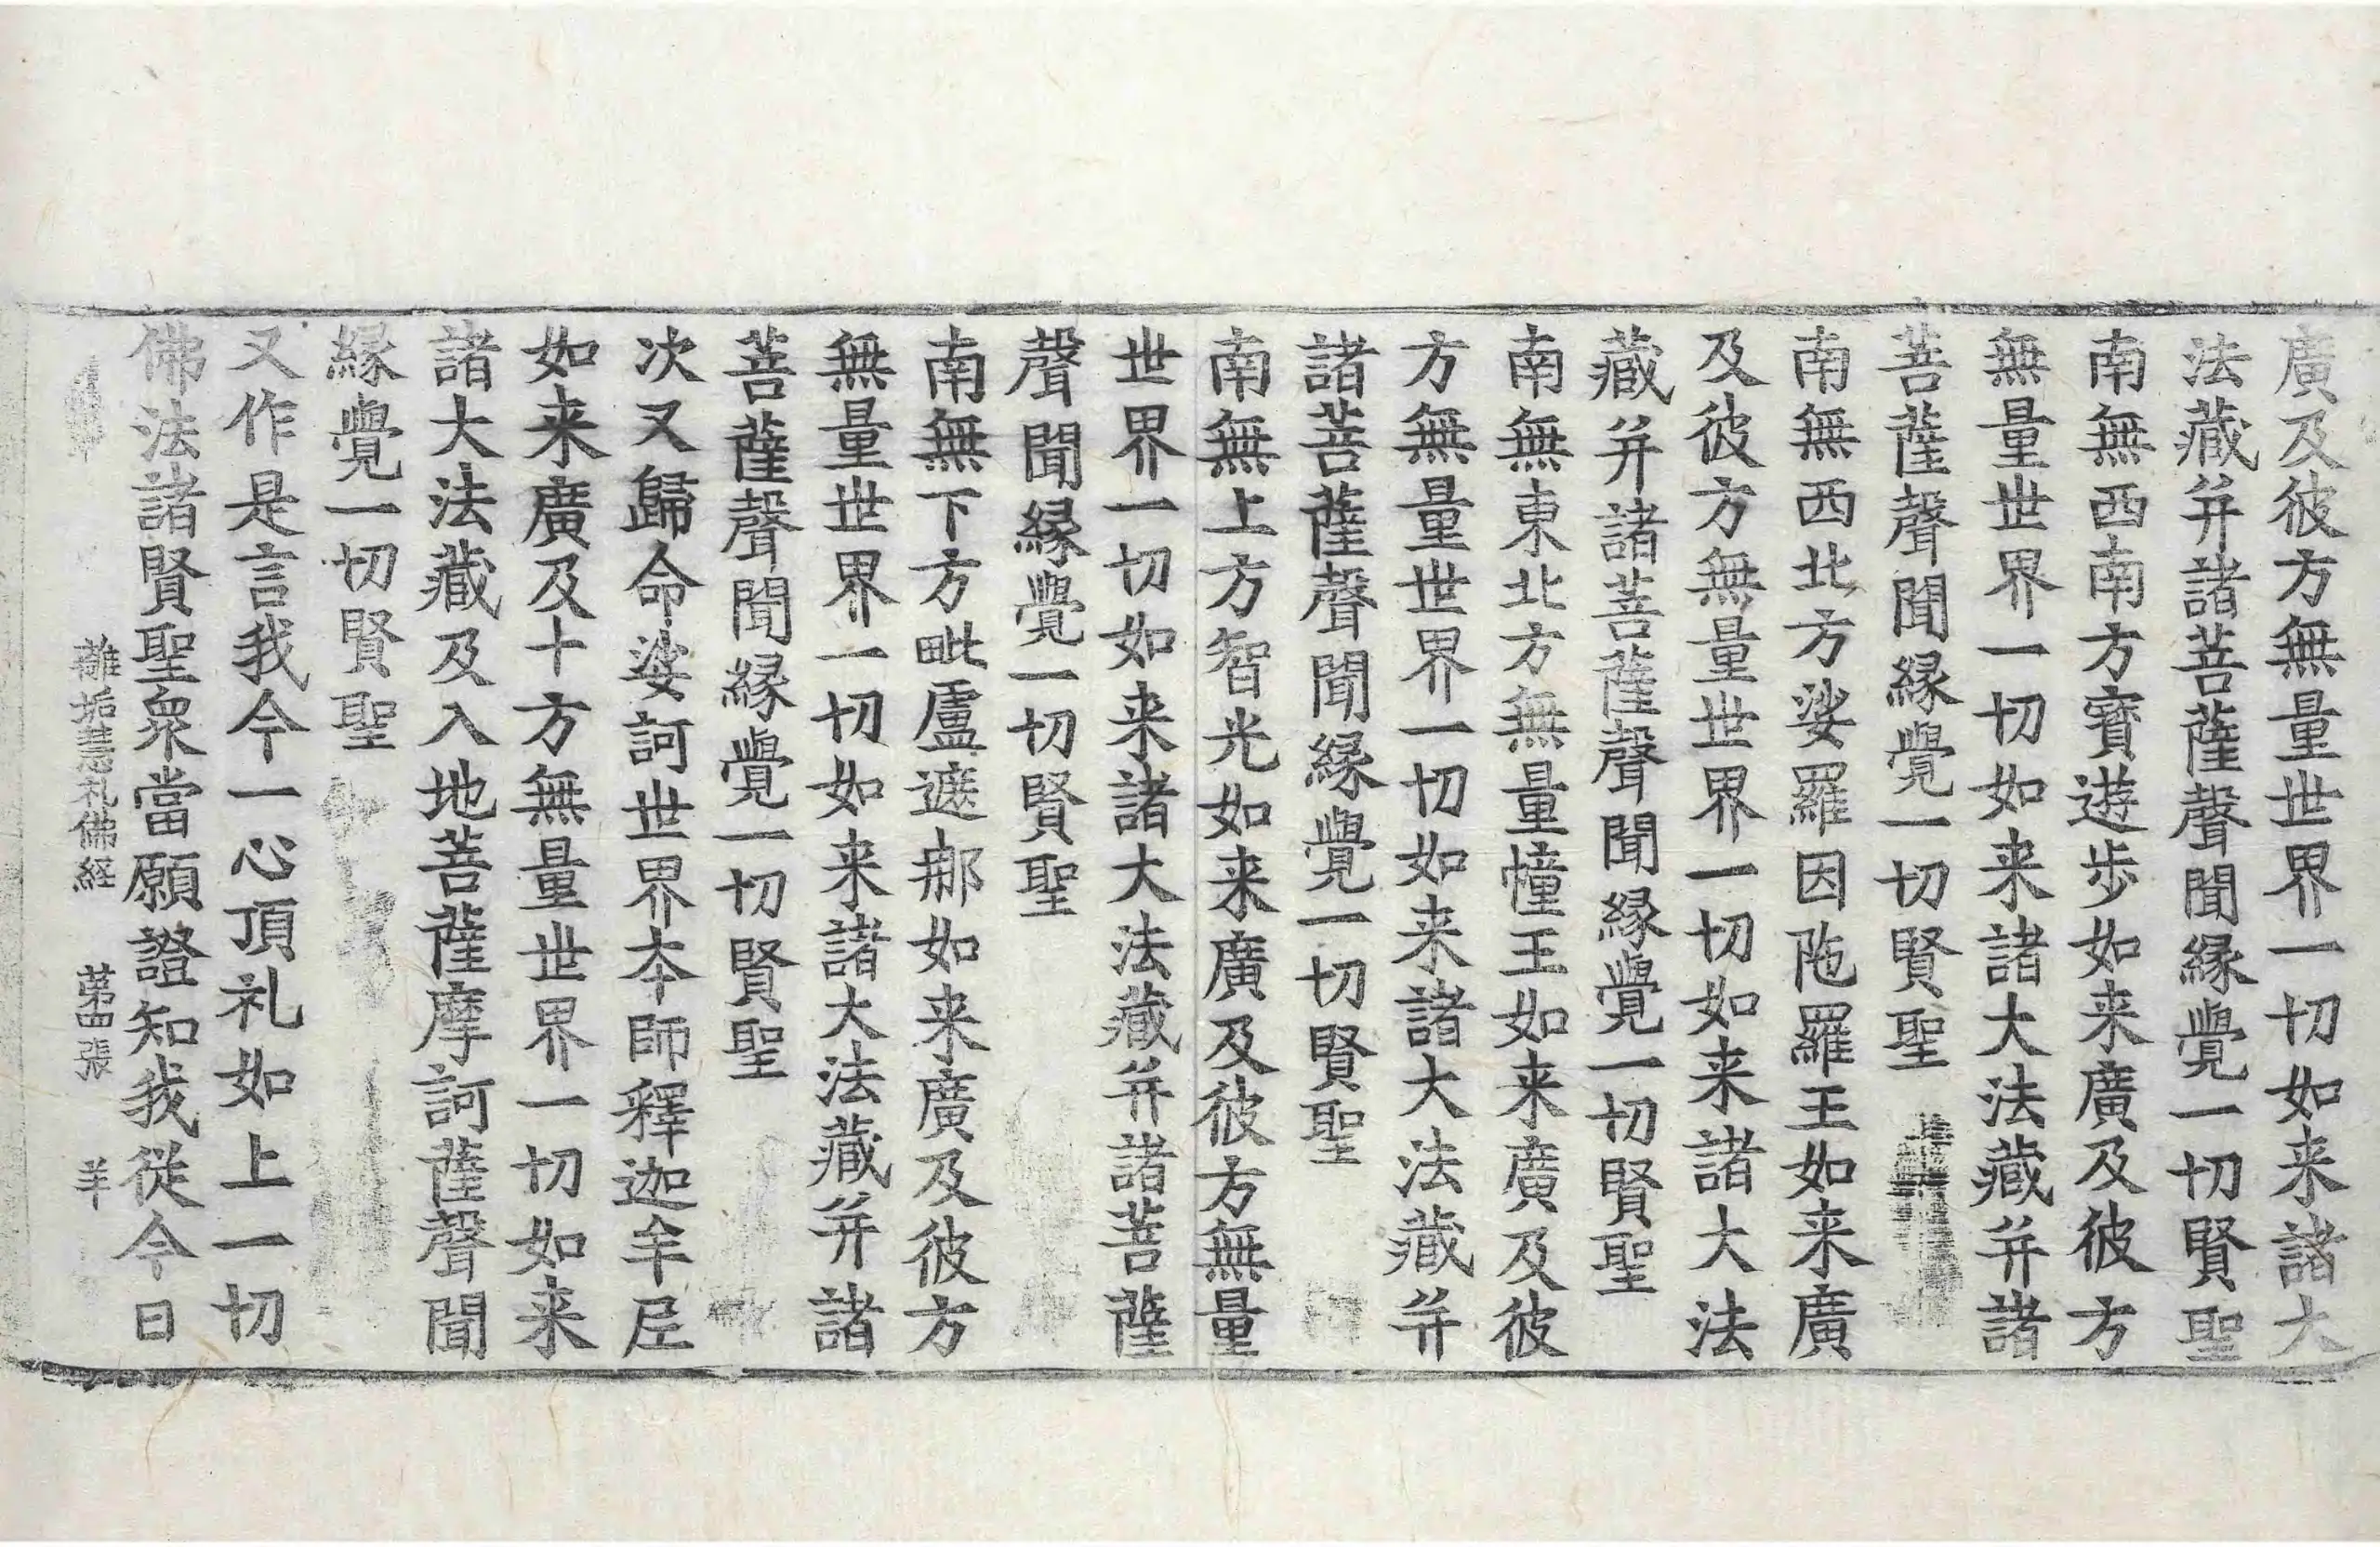 廣及彼方無量世界一切如来諸大
法藏并諸菩薩聲聞縁覺一切賢聖
南無西南方寳遊步如来廣及彼方
無量世界一切如来諸大法藏并諸
菩薩聲聞縁覺一切賢聖
南無西北方娑羅因陁羅王如来廣
及彼方無量世界一切如来諸大法
藏并諸菩薩聲聞縁覺一切賢聖
南無東北方無量幢王如来廣及彼
方無量世界一切如来諸大法藏并
諸菩薩聲聞縁覺一切賢聖
南無上方智光如来廣及彼方無量
世界一切如来諸大法藏并諸菩薩
聲聞縁覺一切賢聖
南無下方毗盧遮那如来廣及彼方
無量世界一切如来諸大法藏并諸
菩薩聲聞縁覺一切賢聖
次又歸命娑訶世界本師釋迦牟尼
如来廣及十方無量世界一切如来
諸大法藏及入地菩薩摩訶薩聲聞
縁覺一切賢聖
又作是言我今一心頂礼如上一切
佛法諸賢聖衆當願證知我從今日
離垢慧礼佛経 苐四張 羊